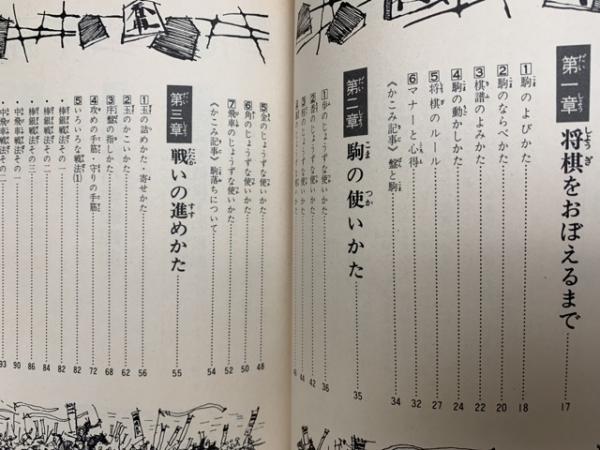 第一章 将棋をおぼえるまで 17
1 駒のよびかた 18
2 駒のならべかた 20
3 棋譜のよみかた 22
4 駒の動かしかた 24
5 将棋のルール 27
6 マナーと心得 32
《かこみ記事》盤と駒 34
第二章 駒の使いかた 35
1 歩のじょうずな使いかた 36
2 香のじょうずな使いかた 42
3 桂のじょうずな使いかた 44
5 金のじょうずな使いかた 48
6 角のじょうずな使いかた 50
7 飛車のじょうずな使いかた 52
《かこみ記事》駒落ちについて 54
第三章 戦いの進めかた 55
1 玉の詰めかた・寄せかた 56
2 玉のかこいかた 62
3 序盤の指しかた 68
4 攻めの手筋・守りの手筋 72
5 いろいろな戦法(1) 82
・棒銀戦法その一 82
・棒銀戦法その二 84
・棒銀戦法その三 86
・中飛車戦法その一 90
・中飛車戦法その二 93